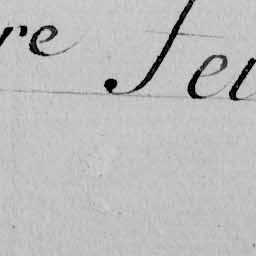 re feu